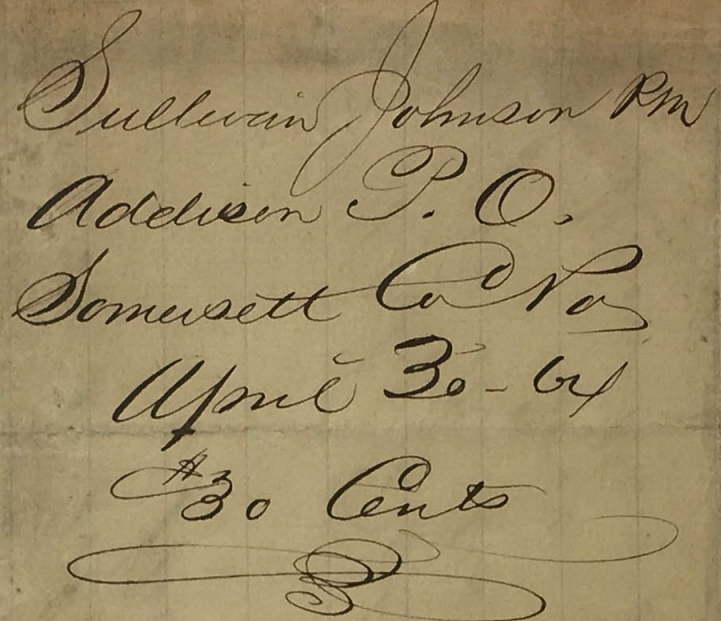 Sullivain Johnson PM
Addison P. O.
Somersett Co Pa
April 30 - 64
$30 Cents